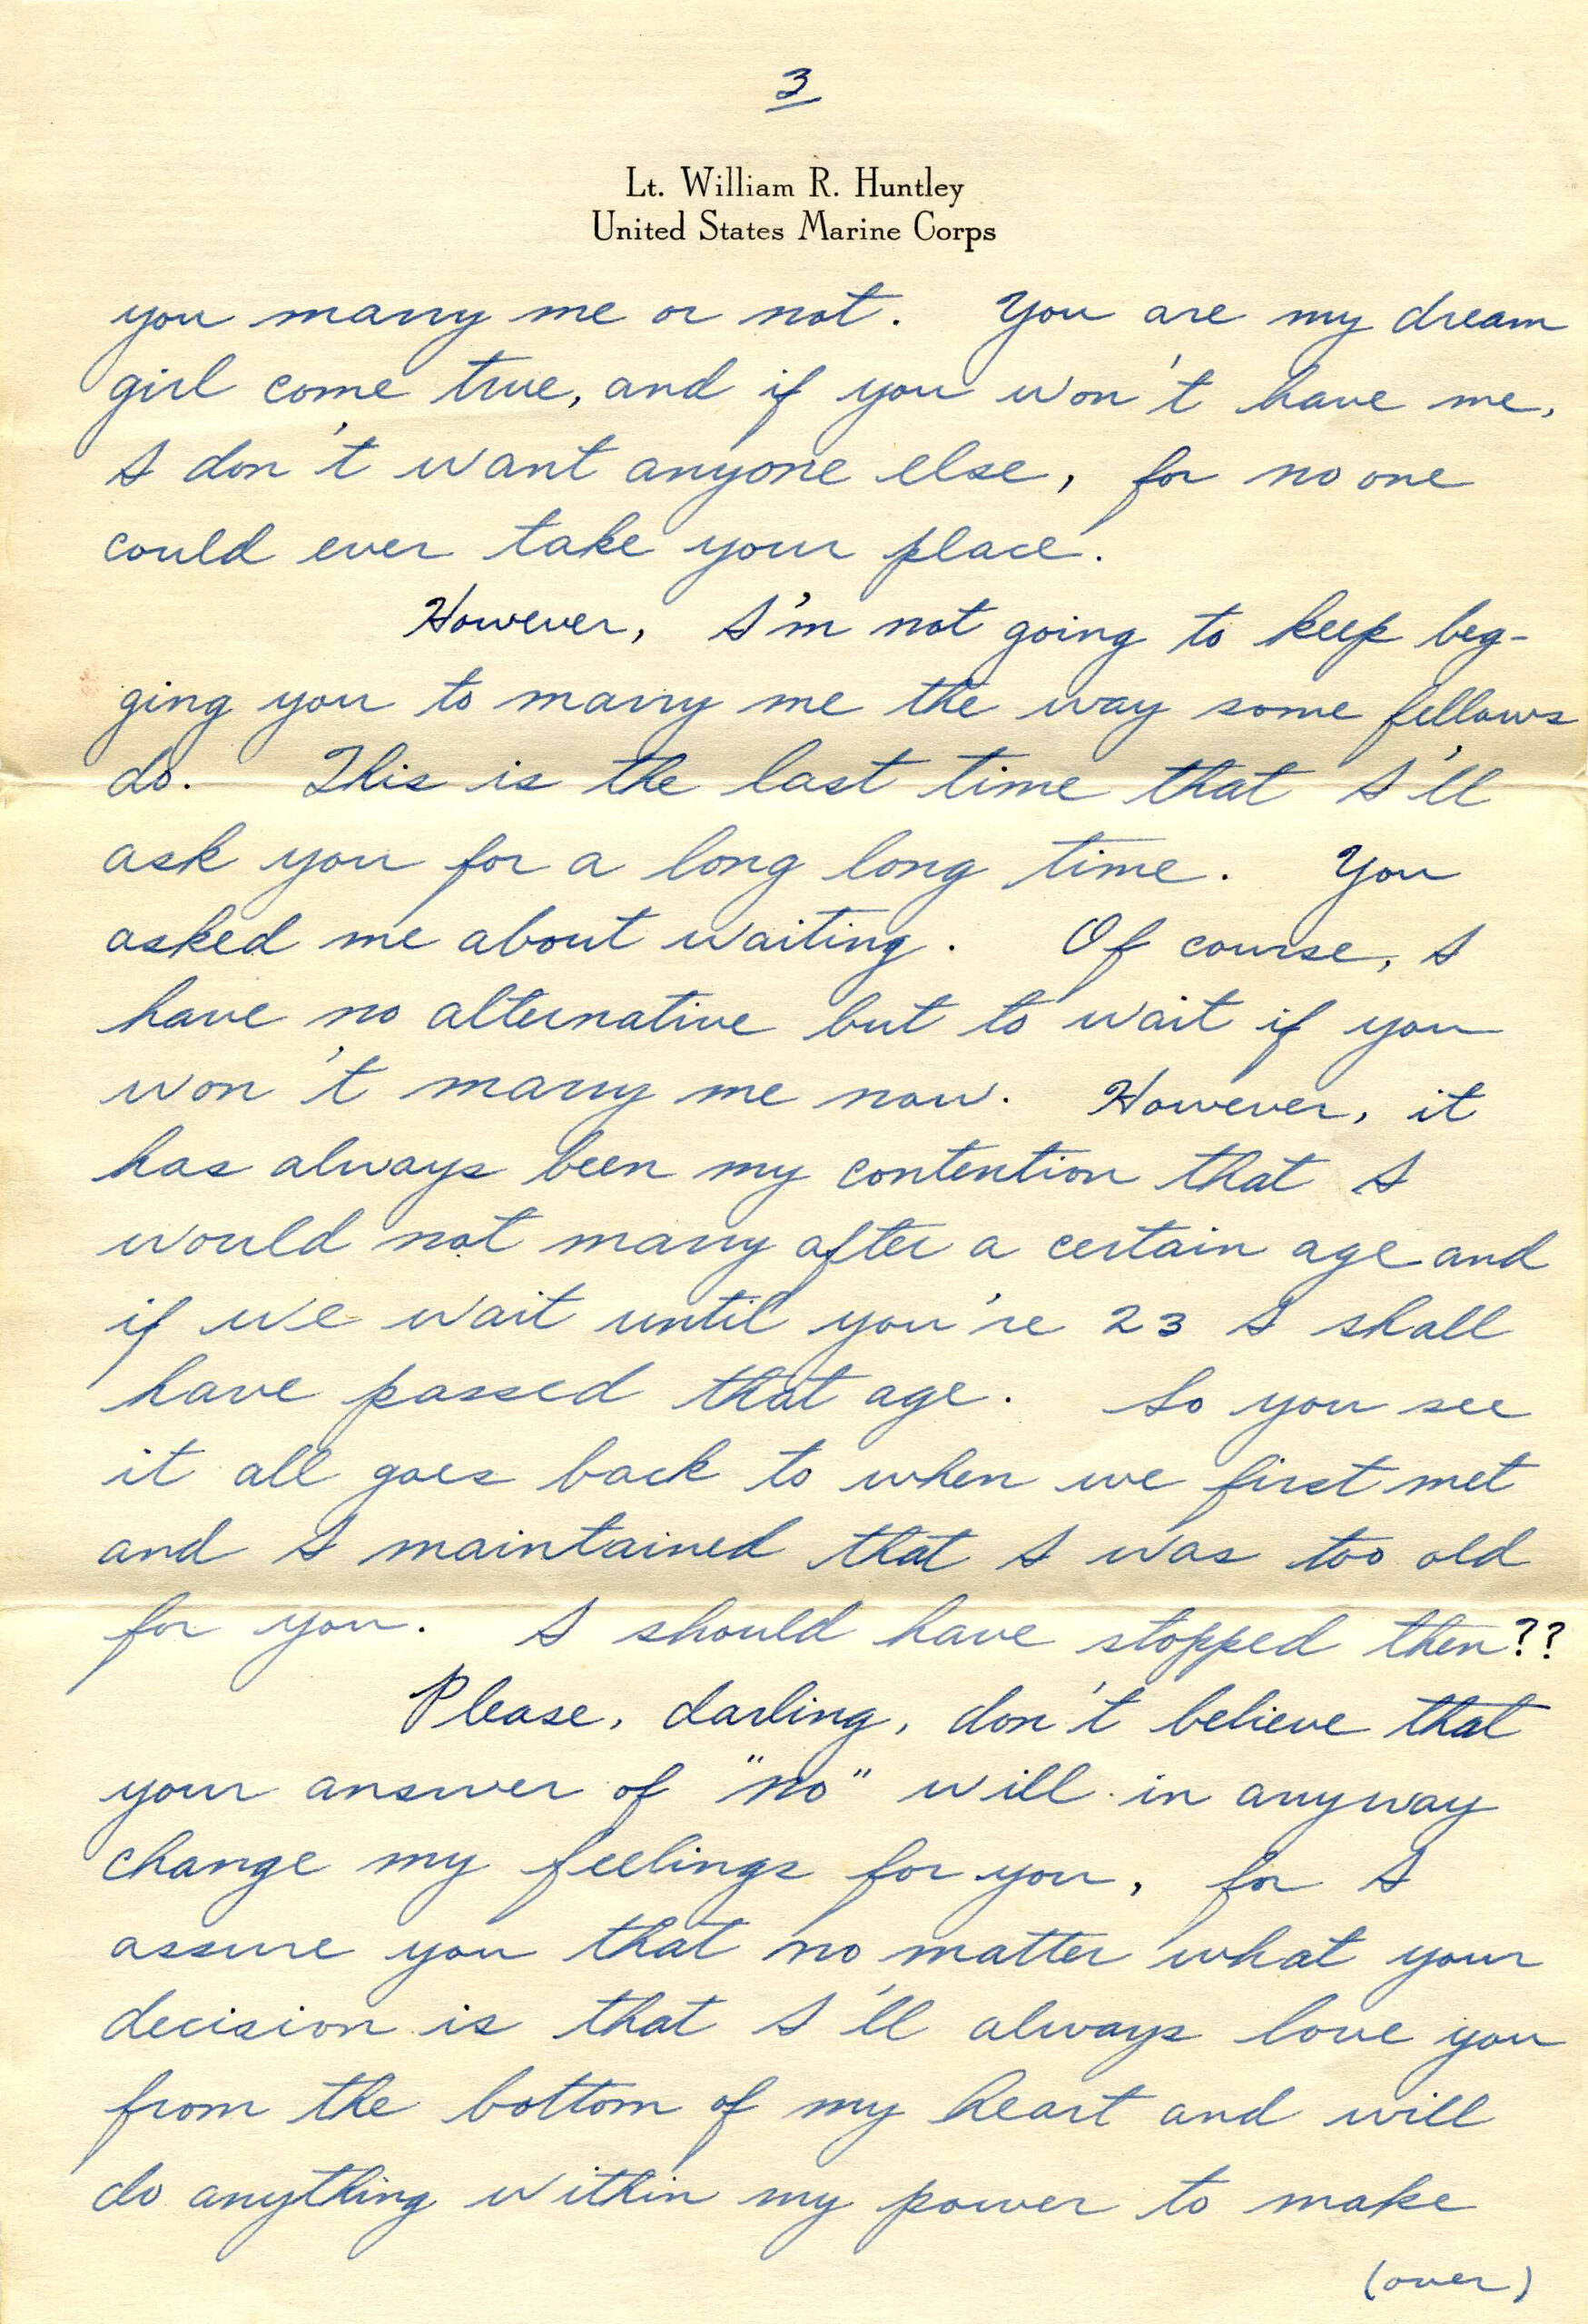 3
Lt. William R. Huntley
United States Marine Corps
you marry me or not. You are my dream
girl come true, and if you won't have me,
I don't want anyone else, for no one
could ever take your place.
However, I'm not going to keep beg-
ging you to marry me the way some fellows
do. This is the last time that I'll
ask you for a long long time. You
asked me about waiting. Of course, I
have no alternative but to wait if you
won't marry me now. However, it
has always been my contention that I
would not marry after a certain age and
if we wait until you're 23 I shall
have passed that age. So you see
it all goes back to when we first met
and I maintained that I was too old
for you. I should have stopped then??
Please, darling, don't believe that
your answer of "no" will in anyway
change my feelings for you, for I
assure you that no matter what your
decision is that I'll always love you
from the bottom of my heart and will
do anything within my power to make
(over)